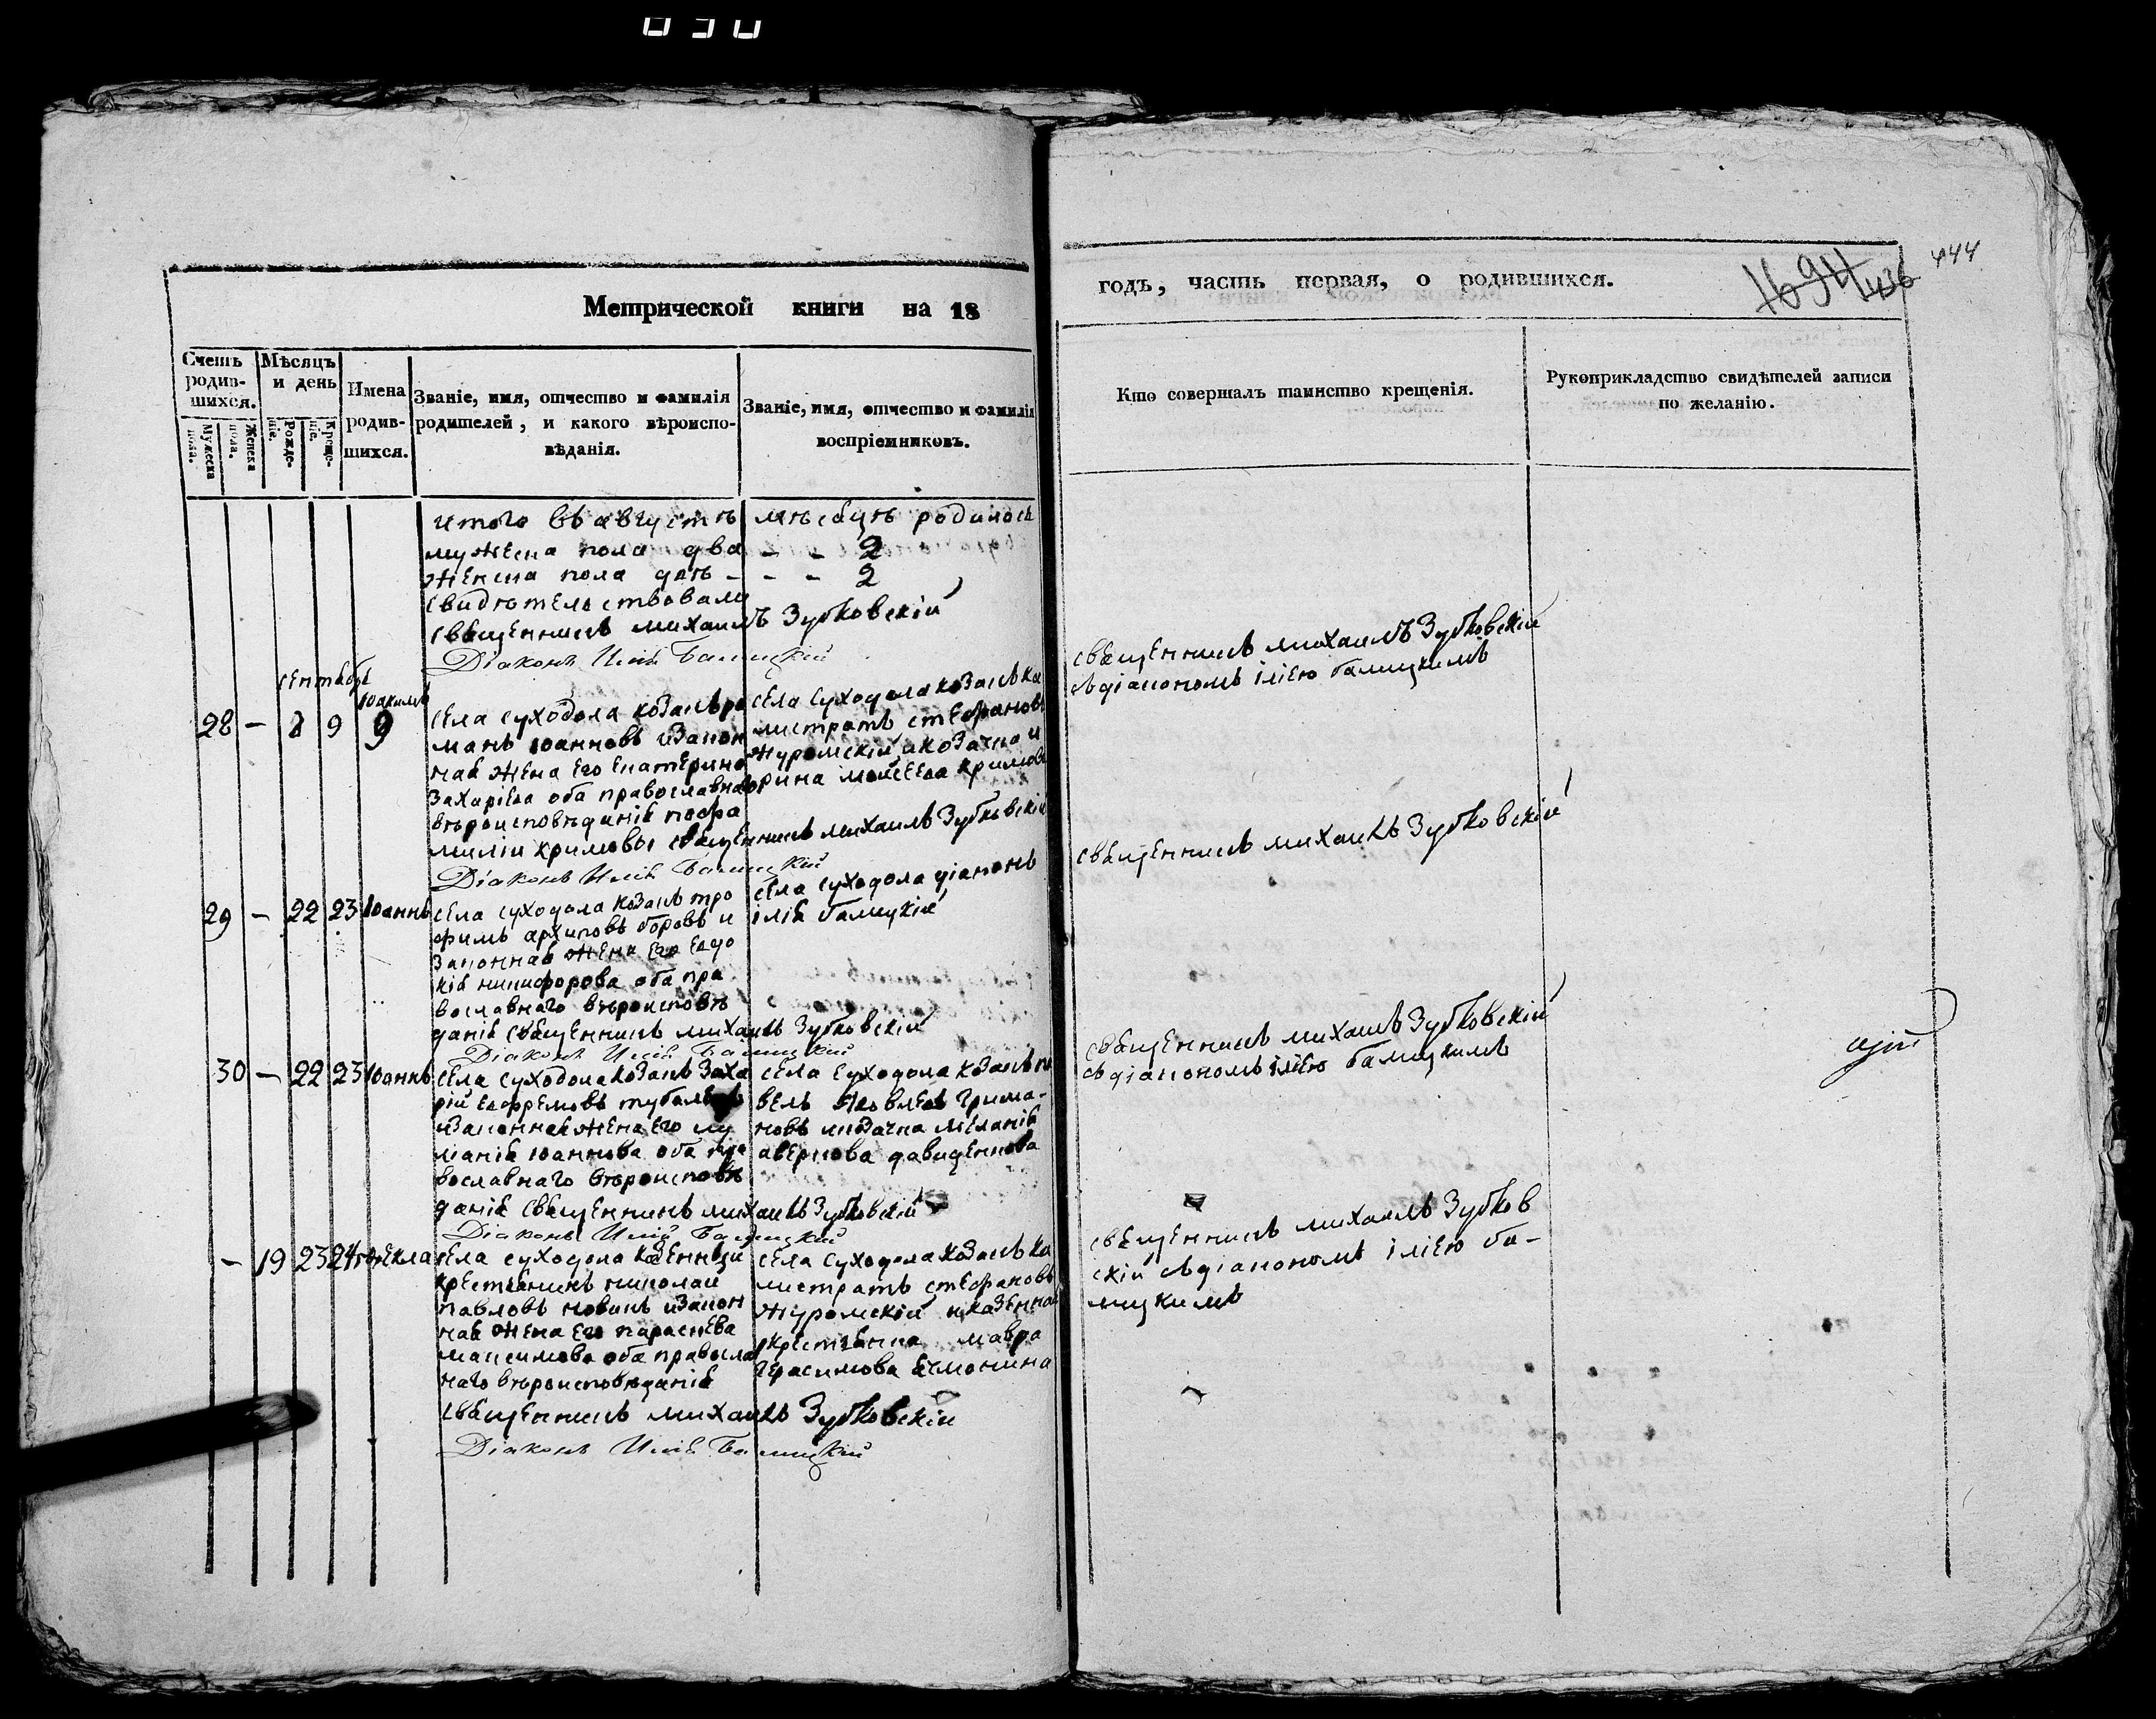 Метрической книги на 18
годъ, часть первая, о родившихся.
444
Счетъ родив-
шихся.
Мужеска пола.
Женска пола.
Мѣсяцъ и день
Рожде-
ніе.
Креще-
ніе.
Имена
родив-
шихся.
Званіе, имя, отчество и фамилія
родителей, и какого вѣроиспо-
вѣданія.
Званіе, имя, отчество и фамилія
воспріемниковъ.
Кто совершалъ таинство крещенія.
Рукоприкладство свидѣтелей записи
по желанію.
итого въ августѣ мѣсяцѣ родилось
мужеска пола два - - 2
женска пола двѣ - - - 2
свидѣтельствовали
священникъ михаилъ Зубковскій
Діаконъ Илія Балицкій
сентябрь
28 - 8 9
Іоакимъ
9
села суходола козакъ ро
манъ іоанновъ изакон
ная жена его екатерина
Захаріева оба православна
вѣроисповѣданія пофа
миліи кримовы священникъ михаилъ Зубковскій
Діаконъ Илія Балицкій
села суходола козакъ ка
листратъ стефановъ
журомскій икозачка и
рина моисеева кримов
священникъ михаилъ Зубковскій
съдіакономъ іліею балицкимъ
29 - 22 23 Іоаннъ
села суходола козакъ тро
фимъ архиповъ боровъ и
Законная жена его евдо
кія никифорова оба пра
вославнаго вѣроисповѣ
данія священникъ михаилъ Зубковскій
Діаконъ Илія Балицкій
села суходола діаконъ
ілія балицкій
священникъ михаилъ Зубковскій
30 - 22 23 Іоаннъ
села суходола козакъ Заха
рій ефремовъ
изаконная жена его лу
міанія іоаннова оба пра
вославнаго вѣроисповѣ
данія священникъ михаилъ Зубковскій
Діаконъ Илія Балицкій
села суходола козакъ па
велъ яковлевъ грима-
новъ икозачка меланія
аверкова давиденкова
священникъ михаилъ Зубковскій
съдіакономъ іліею балицкимъ
- 19 23 24 фекла
села суходола казенный
крестьянинъ николай
павловъ новикъ изакон
ная жена его параскева
максимова оба правосла
наго вѣроисповѣданія
священникъ михаилъ Зубковскій
Діаконъ Илія Балицкій
села суходола козакъ ка
листратъ стефановъ
журомскій иказенная
крестьянка мавра
герасимова
священникъ михаилъ Зубков
скій съдіакономъ іліею ба-
лицкимъ